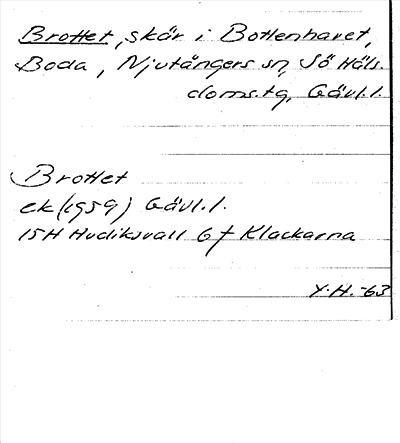 Brottet, skär i Bottenhavet,
Boda, Njutångers sn, Sö Häls.
doms.tg, Gävl.l.
Brottet
ek (1959) Gävl.l.
15H Hudiksvall 6f Klackarna
Y.H. -63